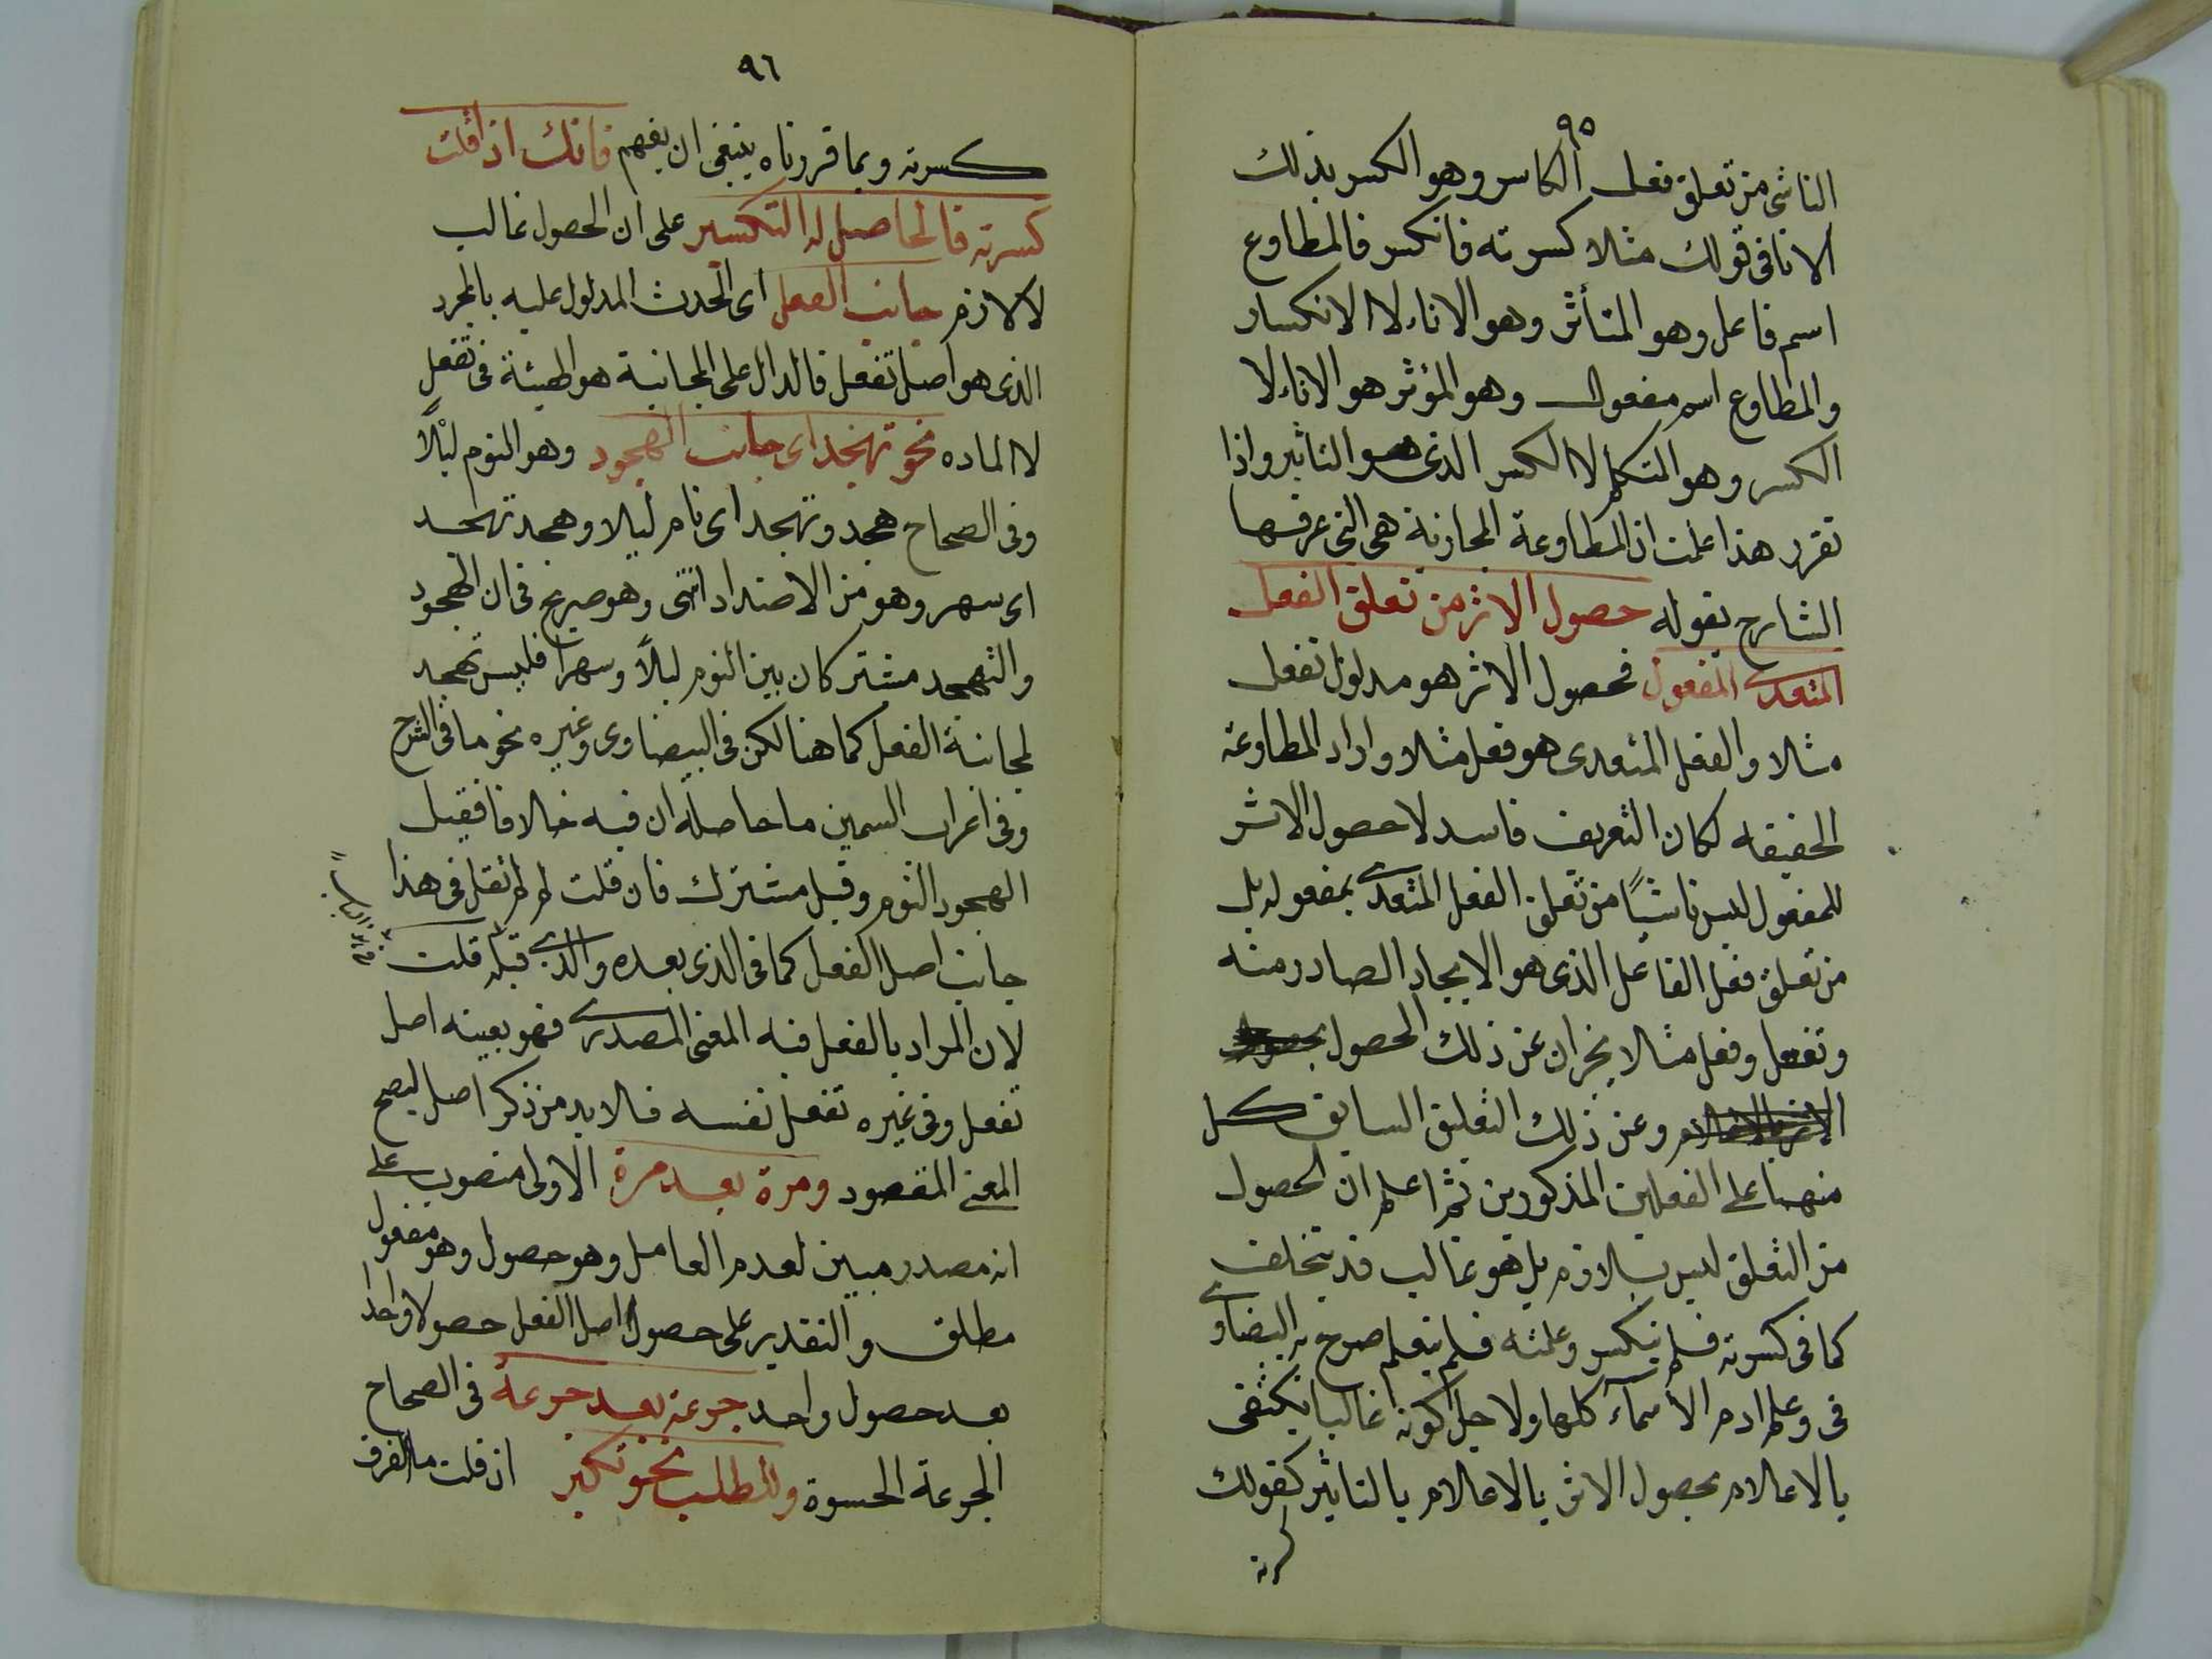 ٩٥
الناشى من تعلق فعل الكاسر وهو الكسر بذلك
الانا فى قولك مثلا كسرته فانكسر فالمطاوع
اسم فاعل وهو المتأثر وهو الاناء لا الانكسار
والمطاوع اسم مفعول وهو المؤثر هو الاناء لا
الكسر وهو المتكلم لا الكسر الذى هو التاثير واذا
تقرر هذا علمت ان المطاوعة المجازية هى التى عرفها
الشارح بقوله حصول الاثر من تعلق الفعل
المتعدى المفعول فحصول الاثر هو مدلول تفعل
مثلا والفعل المتعدى هو فعل مثلا واراد المطاوعة
الحقيقه لكان التعريف فاسد لا حصول الاثر
للمفعول ليس ناشيًا من تعلق الفعل المتعدى بمفعوله بل
من تعلق فعل الفاعل الذى هو الايجاد الصادر منه
وتفعل وفعل مثلا يخبران عن ذلك الحصول
وعن ذلك التعليق السابق كل
منهما على الفعلين المذكورين ثم اعلم ان الحصول
من التعلق ليس بلازم بل هو غالب قد يتخلف
كما فى كسرته فلم ينكسر وعلمته فلم يتعلم صرح به البيضاوى
فى وعلم ادم الأسمآء كلها ولا جل كونه غالبا يكتفى
بالاعلام بحصول الاثر بالاعلام بالتاثير كقولك
كسرته
٩٦
كسرته وبما قررناه ينبغى ان يفهم فانك اذا قلت
كسرته فالحاصل له التكسير على ان الحصول غالب
لا لازم جانب الفعل اى الحدث المدلول عليه بالمجرد
الذى هو اصل تفعل فالدال على المجانبة هو الهيئة فى تفعل
لا الماده نحو تهجد اى جانب الهجود وهو النوم ليلًا
وفى الصحاح هجد وتهجد اى نام ليلا وهجد تهجد
اى سهر وهو من الاضداد انتهى وهو صريح فى ان الهجود
والتهجد مشتركان بين النوم ليلاً وسهرا فليس تهجد
لمجانبة الفعل كما هنا لكن فى البيضاوى وغيره نحو ما فى الشرح
وفى اعراب السمين ما حاصله ان فيه خلافا فقيل
الهجود النوم وقيل مشترك فان قلت لم لم نقل فى هذا
جانب اصل الفعل كما فى الذى بعده والذى قبله قلت
لان المراد بالفعل فيه المعنى المصدرى فهو بعينه اصل
تفعل وفى غيره تفعل نفسه فلابد من ذكر اصل ليصح
المعنى المقصود ومرة بعد مرة الاولى منصوب على
انه مصدر مبين لعدم العامل وهو حصول وهو مفعول
مطلق والتقدير على حصول اصل الفعل حصولا واحدا
بعد حصول واحد جرعة بعد جرعة فى الصحاح
الجرعة الحسوة وللطلب نحو تكبر ان قلت ما الفرق